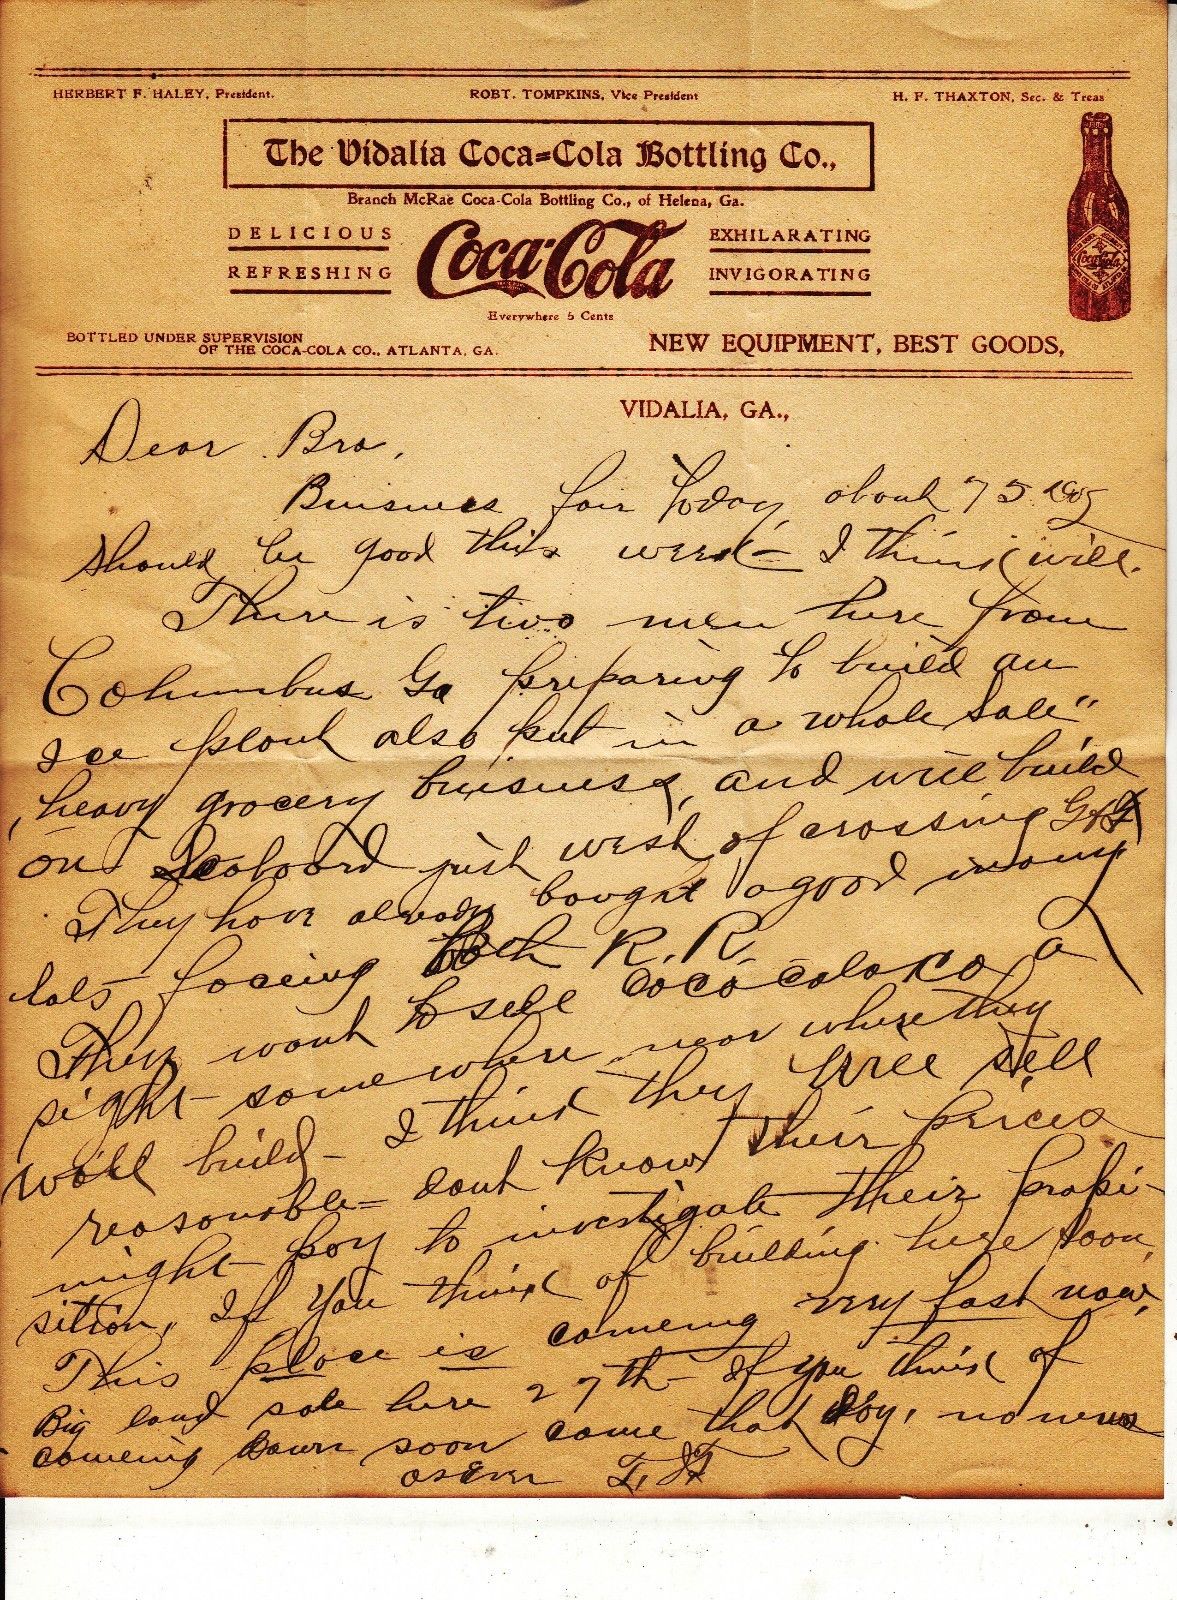 HERBERT F. HALEY, President.
ROBT. TOMPKINS, Vice President
H. F. THAXTON, Sec. & Treas
The Vidalia Coca=Cola Bottling Co.,
Branch McRae Coca-Cola Bottling Co., of Helena, Ga.
DELICIOUS
REFRESHING
Coca-Cola
EXHILARATING
INVIGORATING
Everywhere 5 Cents
BOTTLED UNDER SUPERVISION
OF THE COCA-COLA CO., ATLANTA, GA.
NEW EQUIPMENT, BEST GOODS,
Coca-Cola
VIDALIA, GA.,
Dear Bro,
Buisness fair today, about 75
should be good this week - I think will.
There is two men here from
Columbus Ga preparing to build an
Ice plant also put in a whole sale"
heavy grocery buisness, and will build
on Seaboard just west of crossing G&F
They have already bought a good many
lots faceing both R. R.
They want to sell Coca cola co a
sight somewhere near where they
will build - I think they will sell
reasonable = dont know their prices
might pay to investigate their propi-
sition, If you think of building here soon,
This place is comeing very fast now,
Big land sale here 27th - If you think of
comeing down soon come that day, no news
as Ever